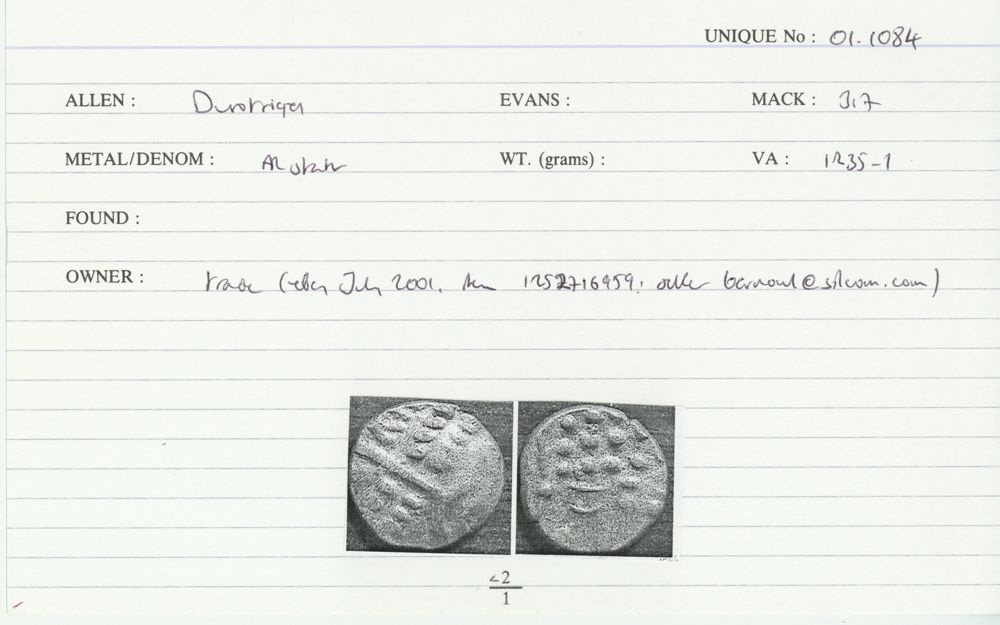 UNIQUE No : 01.1084
ALLEN : Durotriges EVANS : MACK : 317
METAL/DENOM : AR stater WT. (grams) : VA : 1235-1
FOUND :
OWNER : trade (eBay July 2001, item 1252716959: seller @silcom.com)
<2
1